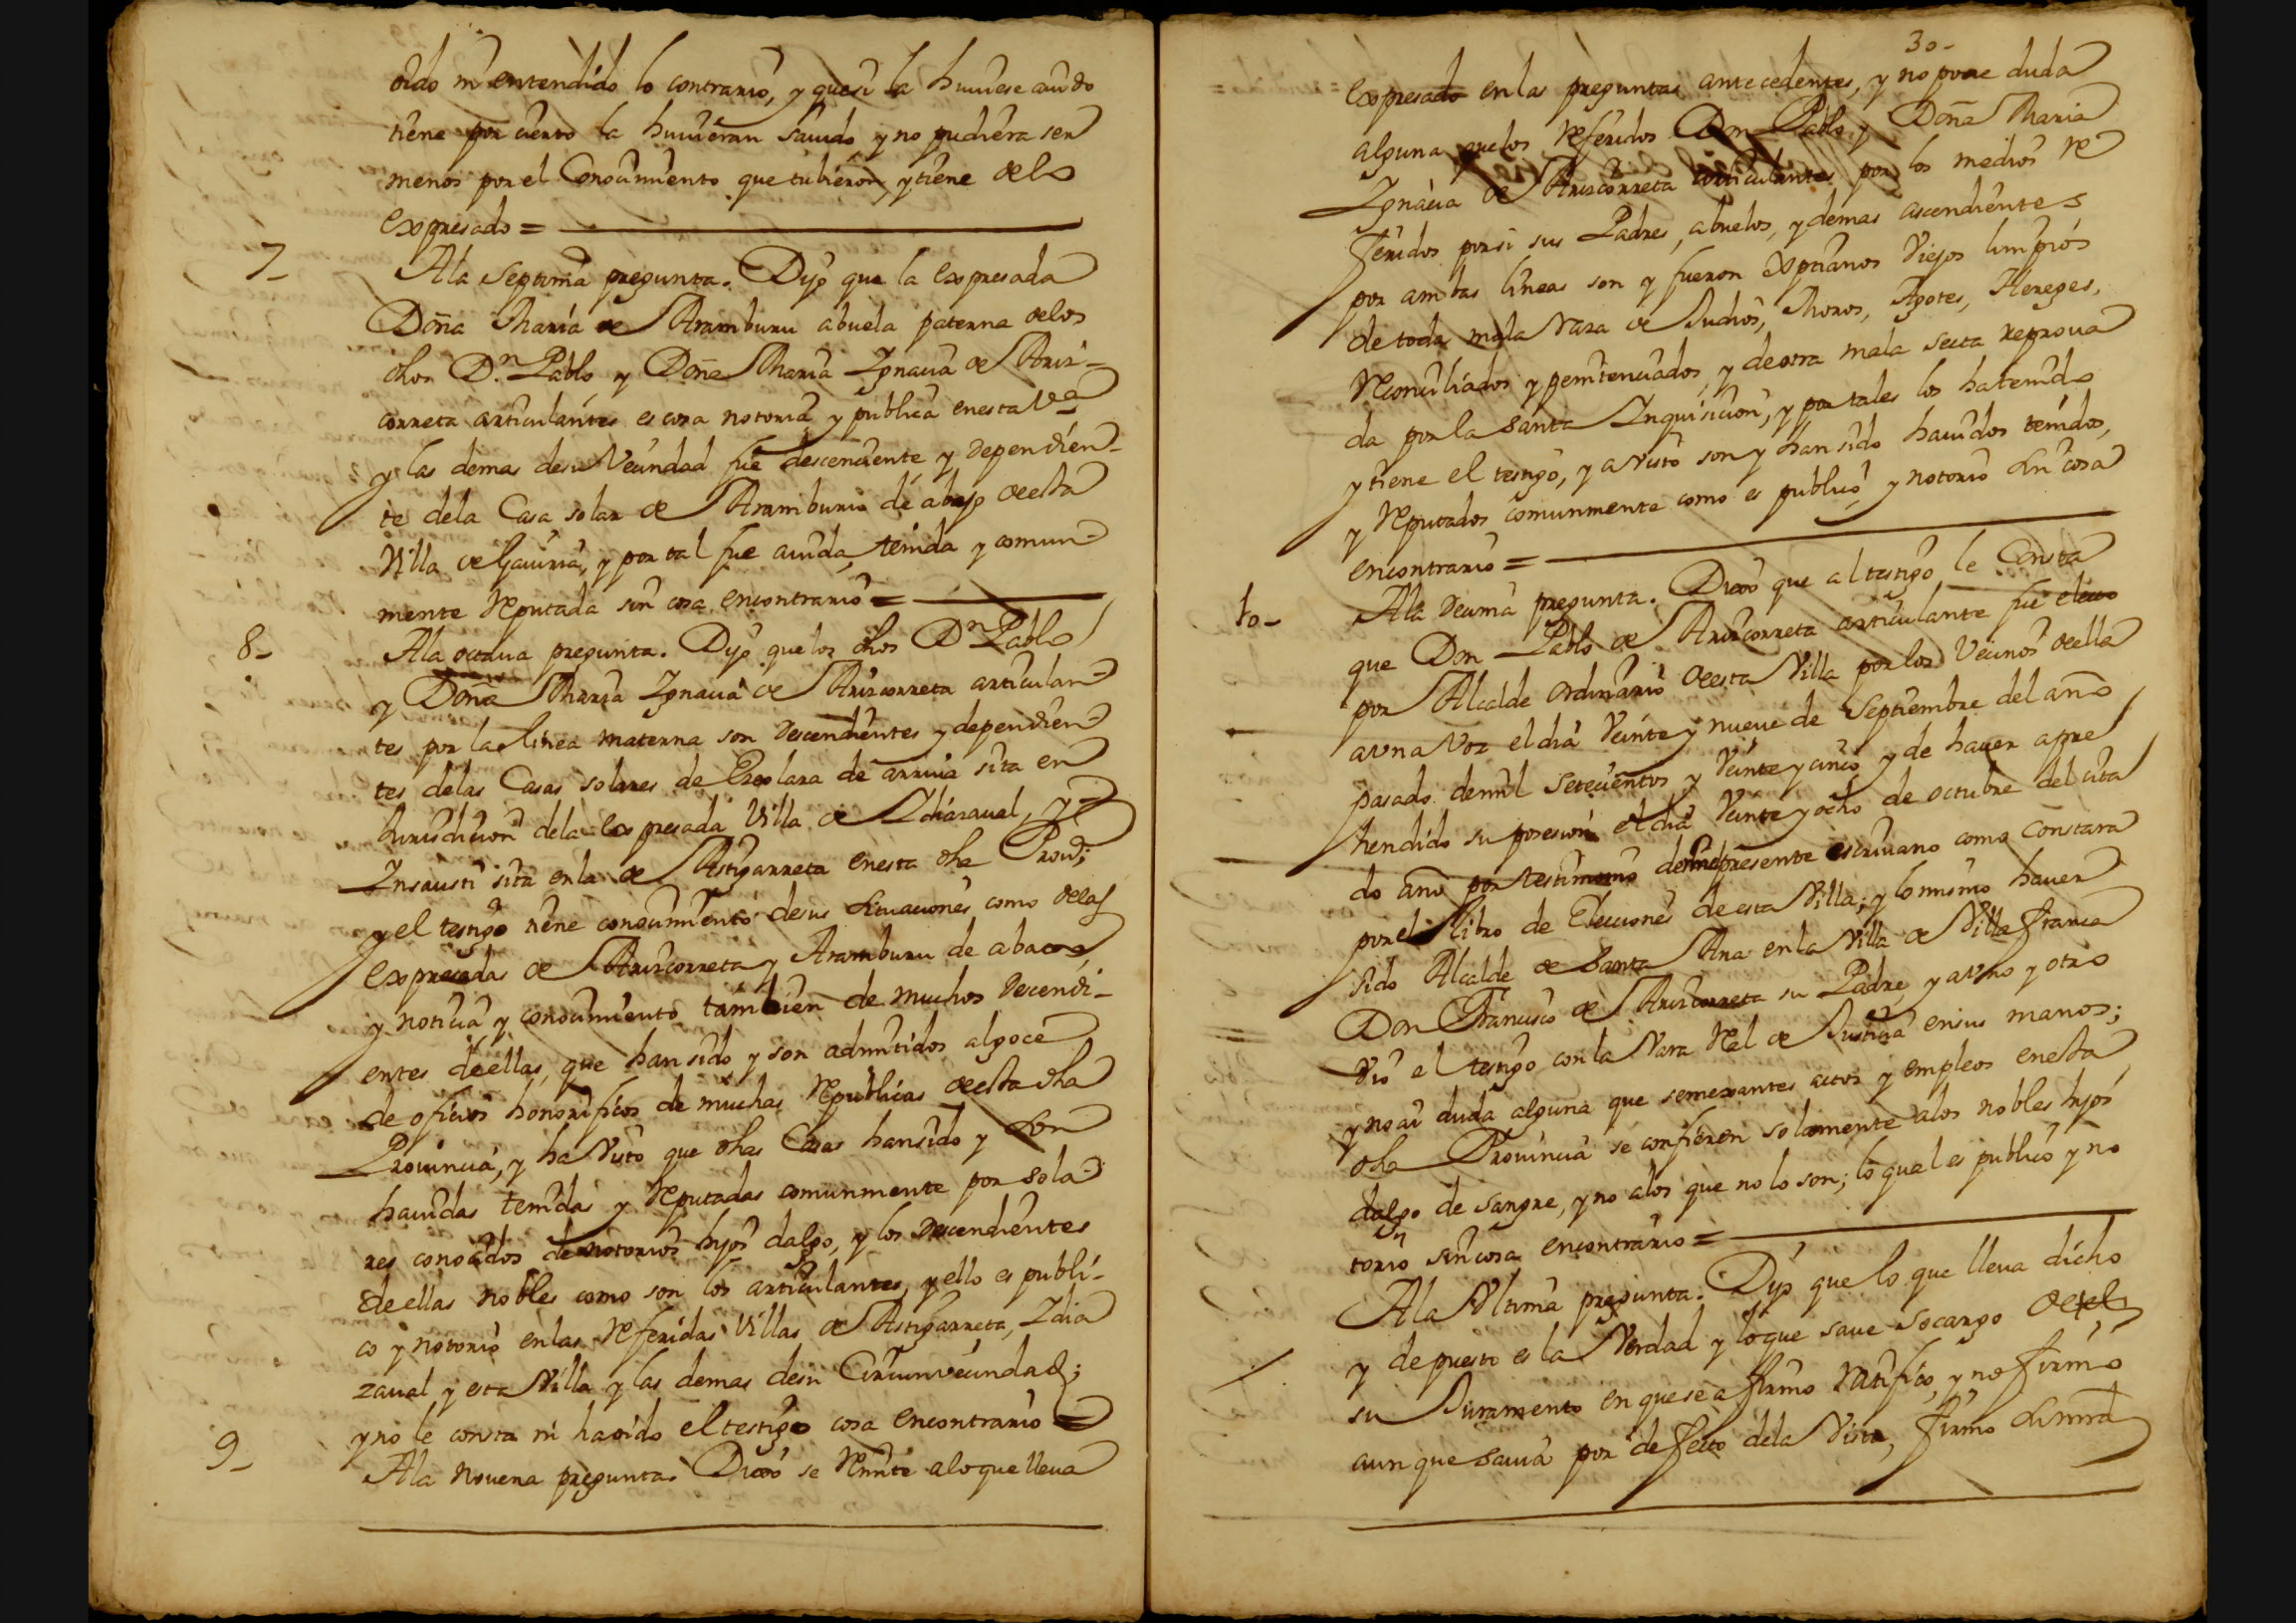 oido ni entendido lo contrario, y que si la huuiese auido
tiene por cierto la huuieran sauido, y no pudiera ser
menos por el Conocimiento que tubieron, y tiene delo
expresado =
7_
Ala Septima pregunta. Dijo que la expresada
Doña Maria de Aramburu abuela paterna delos
dhos D.n Pablo y Doña Maria Ignacia de Ariz-
correta articulantes es cosa notoria y publica enesta Va
y las demas desu Vecindad fue descendiente y dependien-
te dela Casa solar de Aramburu de abajo deesta
Villa de Gauiria, y por tal fue auida, tenida y comun-
mente Reputada sin cosa encontrario =
8_
Ala octaua pregunta. Dijo que los dhos Dn Pablo
y Doña Maria Ignacia de Arizcorreta articulan-
tes por la linea materna son descendientes y dependien-
tes delas Casas solares de Oreolara de arriua sita en
Jurisdicion dela expresada Villa de Ydiazaual, y
Insausti sita enla de Astigarreta enesta dha Prou.a;
y el testigo tiene conocimiento desus situaciones como delas
expresadas de Arizcorreta y Aramburu de abaxo,
y noticia y conocimiento tambien de muchos descendi-
entes deellas, que han sido, y son admitidos algoce
de oficios honorificos de muchas Republicas deesta dha
Prouincia, y ha visto que dhas Casas hansido y son
hauidas tenidas y Reputadas comunmente por sola-
res conocidos de notorios hijos dalgo, y los descendientes
deellas nobles como son los articulantes, y ello es publi-
co y notorio enlas Referidas Villas de Astigarreta, Ydia
zaual y esta Villa y las demas desu Circunvecindad;
y no le consta ni ha oido el testigo cosa encontrario =
9_
Ala Nouena pregunta. Dixo se Remite aloque lleua
30-
expresado enlas preguntas antecedentes, y no pone duda
alguna, que los Referidos Don Pablo y Doña Maria
Ignacia de Arizcorreta articulantes por los medios re
feridos por si sus Padres, abuelos, y demas ascendientes
por ambas lineas son y fueron Xptianos Viejos limpios
de toda mala raza de Judios, Moros, Agotes, Hereges,
Reconciliados y penitenciados, y deotra mala secta reproua
da por la Santa Inquisicion, y por tales los hatenido
y tiene el testigo, y a visto son y han sido hauidos tenidos,
y Reputados comunmente como es publico, y notorio sin cosa
encontrario =
10-
Ala Decima pregunta. Dixo que altestigo le Consta
que Don Pablo de Arizcorreta articulante fue electo
por Alcalde ordinario deesta Villa por los Vecinos deella
auna Voz el dia Veinte y nueue de Septiembre del año
pasado demil Setecientos y Veinte y cinco y de hauer apre
hendido su posesion el dia Veinte y ocho de octubre del cita
do año por testimonio demi el presente escriuano como constara
por el Libro de Elecciones deesta Villa; y lo mismo hauer
sido Alcalde de Santa Ana enla Villa de Villafranca
Don Francisco de Arizcorreta su Padre, y auno y otro
vio el testigo con la Vara Rel de Justicia ensus manos;
y no ai duda alguna que semejantes actos y empleos enesta
dha Prouincia se confieren solamente alos nobles hijos
dalgo de sangre, y no alos que no lo son; lo qual es publico y no
torio sin cosa encontrario =
Ala Vltima pregunta. Dijo que lo que lleua dicho
y depuesto es la Verdad y lo que saue so cargo de el
su Juramento en que se afirmo Ratifico, y no firmo
aunque sauia por defecto dela Vista, firmo su mrd